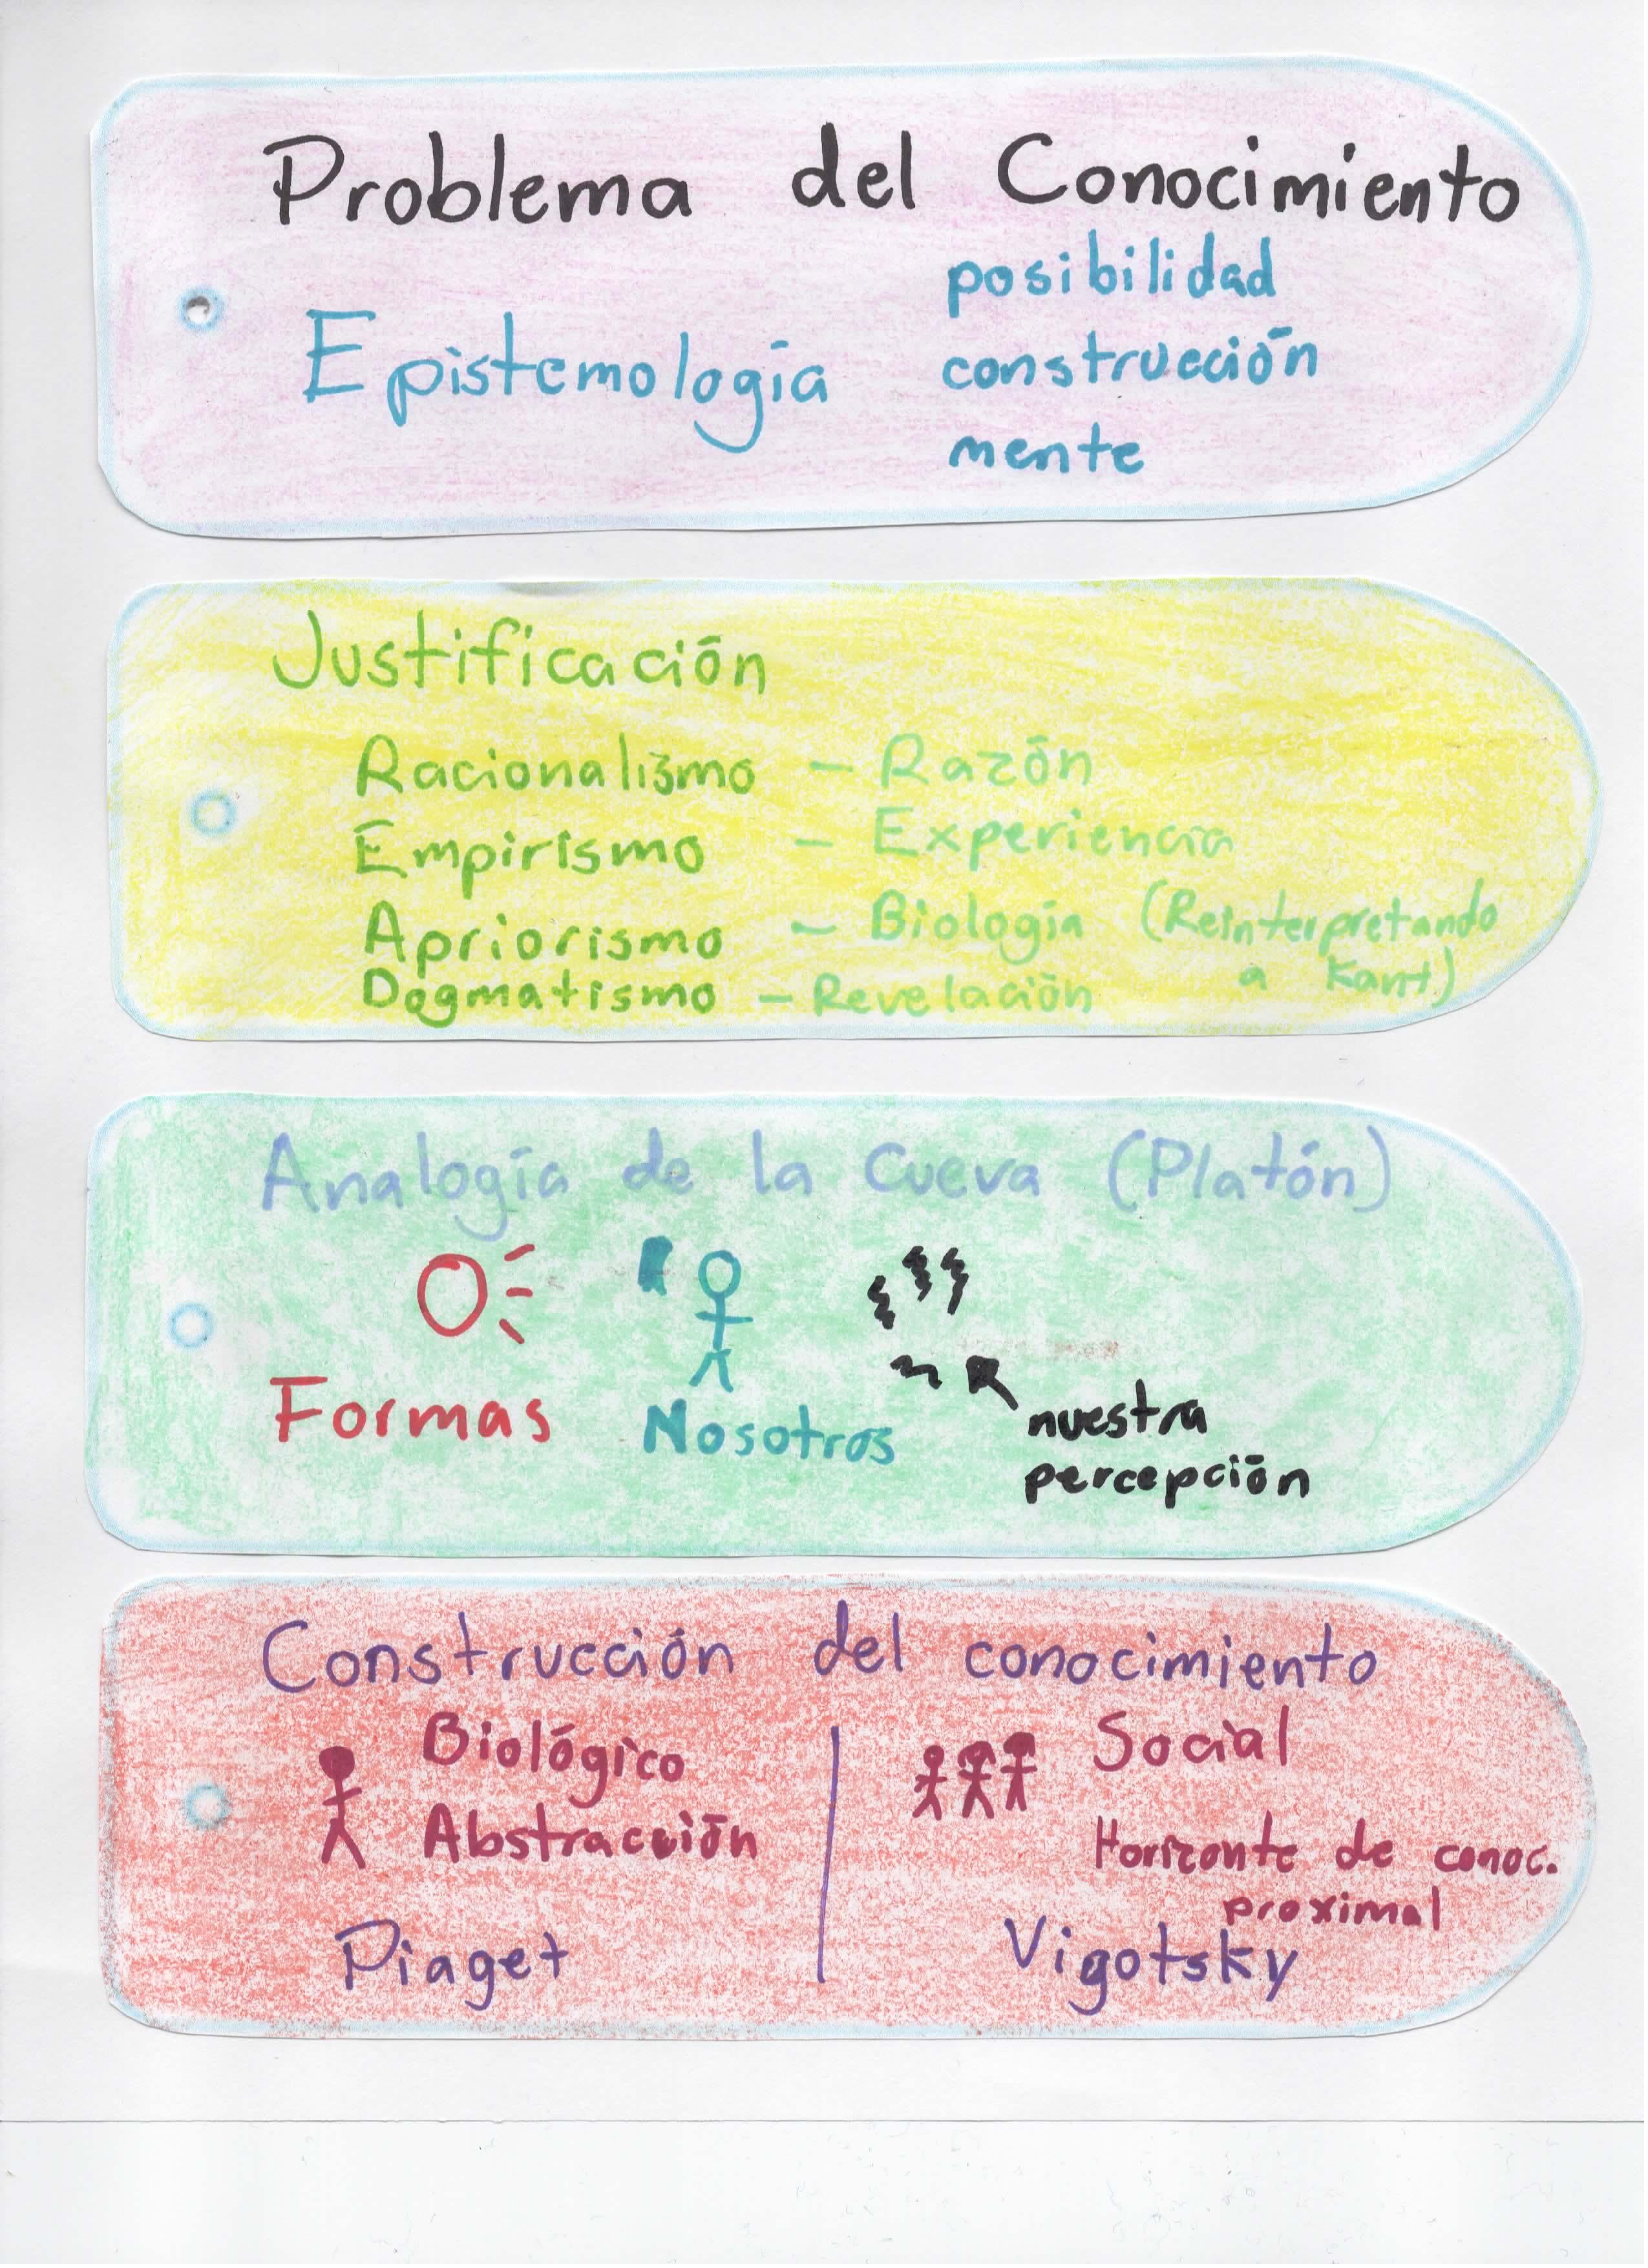 Problema del Conocimiento
Epistemología
posibilidad
construcción
mente
Justificación
Racionalismo - Razón
Empirismo - Experiencia
Apriorismo - Biología (Reinterpretando
a Kant)
Dogmatismo - Revelación
Analogía de la cueva (Platón)
Formas
Nosotros
nuestra
percepción
Construcción del conocimiento
Biológico
Abstracción
Piaget
Social
Horizonte de conoc.
proximal
Vigotsky